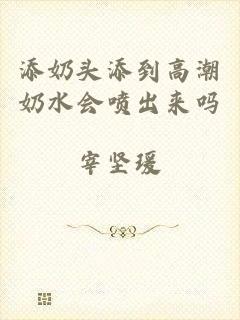 添奶头添到高潮
奶水会喷出来吗
宰坚瑗